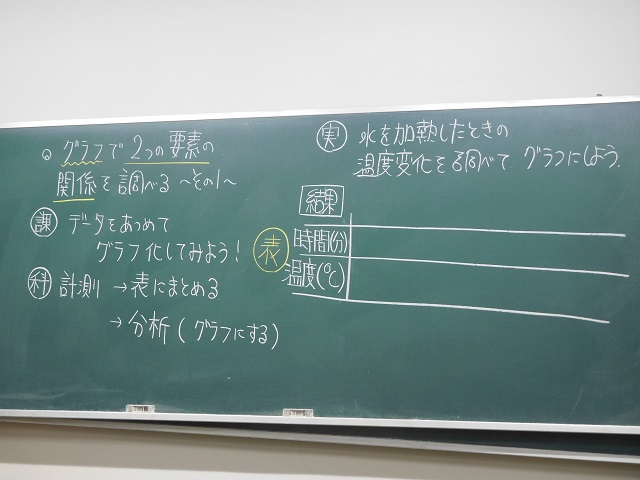 。グラフで2つの要素の
関係を調べる ～その1～
課 データをあつめて
グラフ化してみよう!
科 計測 →表にまとめる
→分析(グラフにする)
実 水を加熱したときの
温度変化を調べて グラフにしよう.
結果
表
時間(分)
温度(℃)